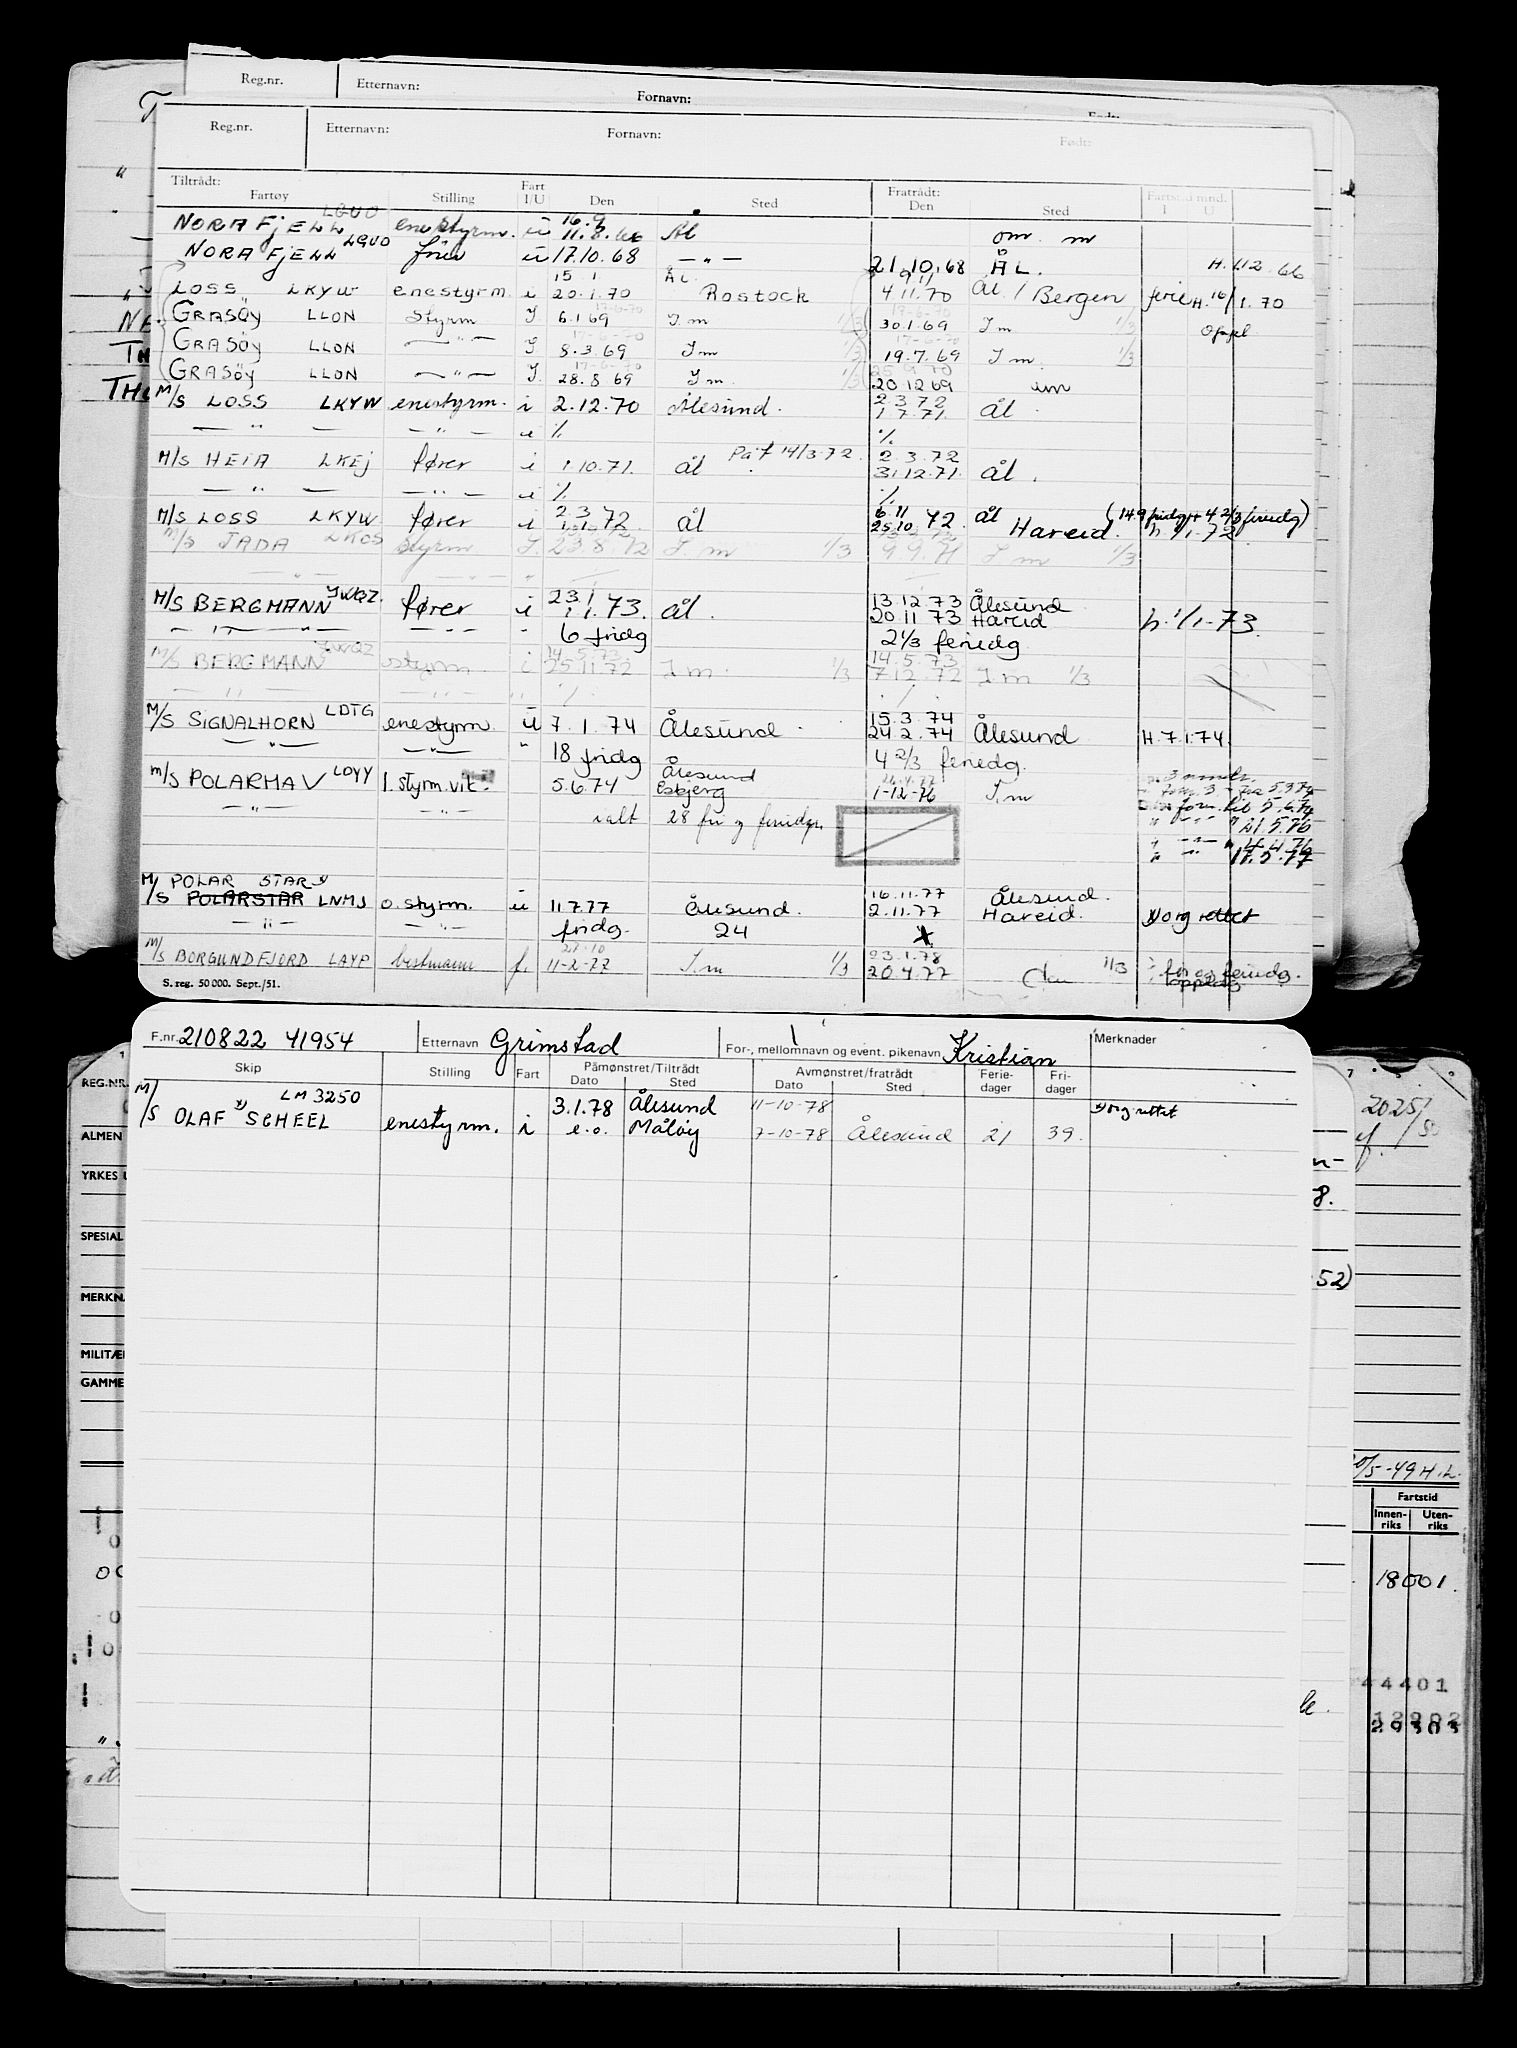 Reg.nr. Etternavn: Fornavn:
Reg.nr. Etternavn: Fornavn: Født:
Tiltrådt: Fartøy Stilling Fart I/U Den Sted Fratrådt: Den Sted Fartstid mnd. I U
LGUO 16.9
NORAFJELL enestyrm. u 11.8.66 Ål om. m
NORAFJELL LGUO fører u 17.10.68 — " — 21.10.68 ÅL. H.1.12.66
15 1 ÅL. 9 11
LOSS LKYW enestyrm. i 20.1.70 Rostock 4.11.70 Ål / Bergen ferie H. 16/1.70
17-6-70 17-6-70
GRASÖY LLON Styrm I 6.1.69 I.m 1/3 30.1.69 I m 1/3
17-6-70 17-6-70
GRASÖY LLON — " — I 8.3.69 I m 1/3 19.7.69 I m. 1/3
17-6-70 25 9 70
GRASÖY LLON — " — I. 28.8.69 I m. 1/3 20.12.69 um
2.3.72
M/S LOSS LKYW enestyrm. i 2.12.70 Ålesund. 1.7.71. Ål.
— " — — " — u % %
På f 14/3-72. 2.3.72
M/S HEIA LKEJ fører i 1.10.71. Ål 31.12.71. Ål.
— " — — " — u % %
2.3 6.11 (149 fridg + 4 2/3 feriedg)
M/S LOSS LKYW fører i 1.1.72 Ål 25.10 72. Ål Hareid. h. 1/1-72
M/S JADA LKCS Styrm I. 23.8.72 I. m 1/3 9.9.71 I m 1/3
23.1 13.12.73 Ålesund
M/S BERGMANN fører i 1.1.73. Ål. 20.11 73 Hareid h. 1/1-73.
— " — — " — " 6 fridg 2 1/3 feriedg
14.5.73 14.5.73
M/S BERGMANN styrm i 25.11.72 I m. 1/3 7.12.72 I m 1/3
— " — — " — " % %
15.3.74
M/S SIGNALHORN LDTG enestyrm. u 7.1.74 Ålesund 24.2.74 Ålesund H.7.1.74.
— " — — " — " 18 fridg 4 2/3 feriedg.
Ålesund
M/S POLARMAV LDYY 1. styrm. vit. 5.6.74 Esbjerg 1-12-76 I.m
— " — — " — ialt 28 fri og feriedgr.
21.5.76
17.5.77
M/ POLAR STAR x) 16.11.77 Ålesund.
S POLARSTAR LNMJ o. styrm. u 11.7.77 Ålesund. 2.11.77 Hareid. x) org rettet
— " — — " — fridg. 24 x
27-10 23.1.78
M/S BORGUNDFJORD LAYP bestmann f. 11-2-77 I.m 1/3 20.4.77 1/3 fri og feriedg.
S. reg. 50 000. Sept./51.
F.nr. 210822 41954 Etternavn Grimstad For-, mellomnavn og event. pikenavn Kristian Merknader
Skip Stilling Fart Påmønstret/Tiltrådt Dato Sted Avmønstret/fratrådt Dato Sted Ferie-dager Fri-dager
M/ LM 3250 3.1.78 Ålesund 11-10-78 x) org rettet
S OLAF x) SCHEEL enestyrm. i e.o. Måløy 7-10-78 Ålesund 21 39.
REG.NR.
ALMEN
YRKES U
SPESIAL
MERKN
MILITÆR
GAMME
20251
8.
52)
/5-49 H.L.
Fartstid
Innen-riks Uten-riks
18001.
44401